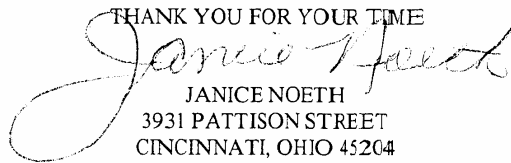 THANK YOU FOR YOUR TIME
Janice Noeth
JANICE NOETH
3931 PATTISON STREET
CINCINNATI, OHIO 45204